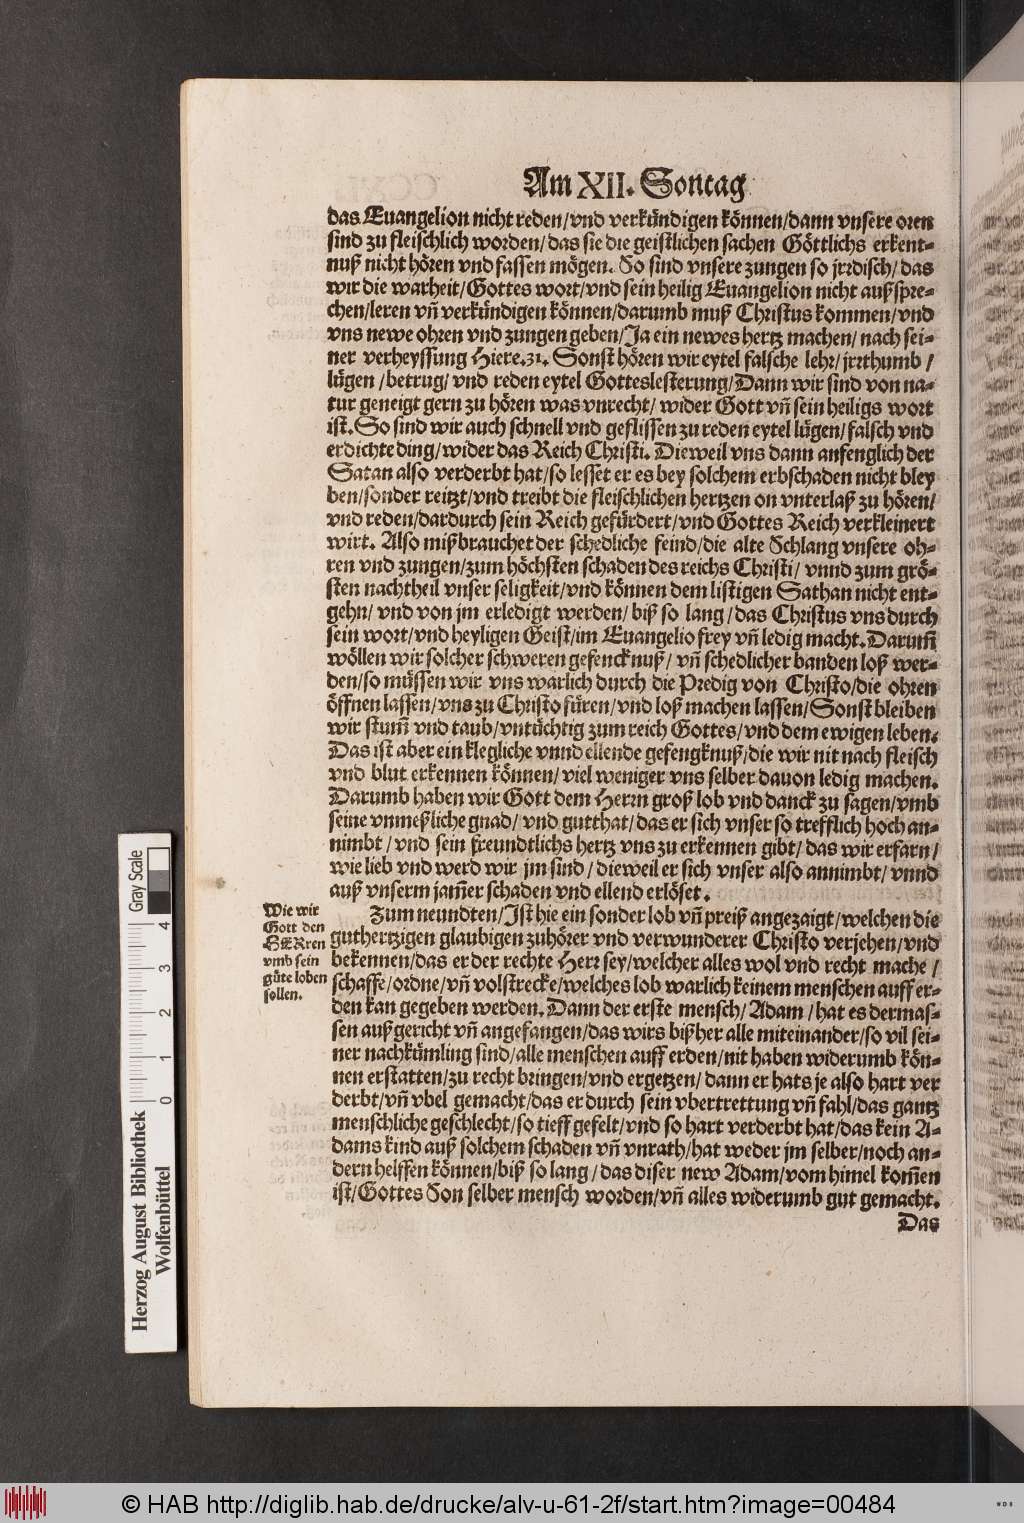 Am XII. Sontag
das Euangelion nicht reden/vnd verkündigen können/dann vnsere oren
sind zu fleischlich worden/das sie die geistlichen sachen Göttlichs erkent-
nuß nicht hören vnd fassen mögen. So sind vnsere zungen so jrrdisch/das
wir die warheit/Gottes wort/vnd sein heilig Euangelion nicht außspre-
chen/leren vñ verkündigen können/darumb muß Christus kommen/vnd
vns newe ohren vnd zungen geben/Ja ein newes hertz machen/nach sei-
ner verheyssung Hiere.31. Sonst hören wir eytel falsche lehr/jrrthumb/
lügen/betrug/vnd reden eytel Gotteslesterung/Dann wir sind von na-
tur geneigt gern zu hören was vnrecht/wider Gott vñ sein heiligs wort
ist. So sind wir auch schnell vnd geflissen zu reden eytel lügen/falsch vnd
erdichte ding/wider das Reich Christi. Dieweil vns dann anfenglich der
Satan also verderbt hat/so lesset er es bey solchem erbschaden nicht bley
ben/sonder reitzt/vnd treibt die fleischlichen hertzen on vnterlaß zu hören/
vnd reden/dardurch sein Reich gefürdert/vnd Gottes Reich verkleinert
wirt. Also mißbrauchet der schedliche feind/die alte Schlang vnsere oh-
ren vnd zungen/zum höchsten schaden des reichs Christi/ vnnd zum grö-
sten nachtheil vnser seligkeit/vnd können dem listigen Sathan nicht ent-
gehn/ vnd von jm erledigt werden/biß so lang/das Christus vns durch
sein wort/vnd heyligen Geist/im Euangelio frey vñ ledig macht. Darum̃
wöllen wir solcher schweren gefencknuß/ vñ schedlicher banden loß wer-
den/so müssen wir vns warlich durch die Predig von Christo/die ohren
öffnen lassen/vns zu Christo füren/vnd loß machen lassen/Sonst bleiben
wir stum̃ vnd taub/vntüchtig zum reich Gottes/vnd dem ewigen leben.
Das ist aber ein klegliche vnnd ellende gefengknuß/die wir nit nach fleisch
vnd blut erkennen können/viel weniger vns selber dauon ledig machen.
Darumb haben wir Gott dem Herrn groß lob vnd danck zu sagen/vmb
seine vnmeßliche gnad/ vnd gutthat/das er sich vnser so trefflich hoch an-
nimbt/vnd sein freundtlichs hertz vns zu erkennen gibt/das wir erfarn/
wie lieb vnd werd wir jm sind/dieweil er sich vnser also annimbt/vnnd
auß vnserm jam̃er schaden vnd ellend erlöset.
Wie wir
Gott den
HERren
vmb sein
güte loben
sollen.
Zum neundten/Jst hie ein sonder lob vñ preiß angezaigt/welchen die
guthertzigen glaubigen zuhörer vnd verwunderer Christo verjehen/vnd
bekennen/das er der rechte Herr sey/welcher alles wol vnd recht mache/
schaffe/ordne/vñ volstrecke/welches lob warlich keinem menschen auff er-
den kan gegeben werden. Dann der erste mensch/Adam/hat es dermas-
sen außgericht vñ angefangen/das wirs bißher alle miteinander/so vil sei-
ner nachkümling sind/alle menschen auff erden/nit haben widerumb kön-
nen erstatten/zu recht bringen/vnd ergetzen/dann er hats je also hart ver
derbt/vñ vbel gemacht/das er durch sein vbertrettung vñ fahl/das gantz
menschliche geschlecht/so tieff gefelt/vnd so hart verderbt hat/das kein A-
dams kind auß solchem schaden vñ vnrath/hat weder jm selber/noch an-
dern helffen können/biß so lang/das diser new Adam/vom himel kom̃en
ist/Gottes Son selber mensch worden/vñ alles widerumb gut gemacht.
Das
Gray Scale
0 1 2 3 4
Herzog August Bibliothek
Wolfenbüttel
© HAB http://diglib.hab.de/drucke/alv-u-61-2f/start.htm?image=00484